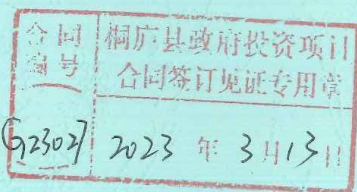 合同编号
桐庐县政府投资项目
合同签订见证专用章
G23027
2023 年 3月13日